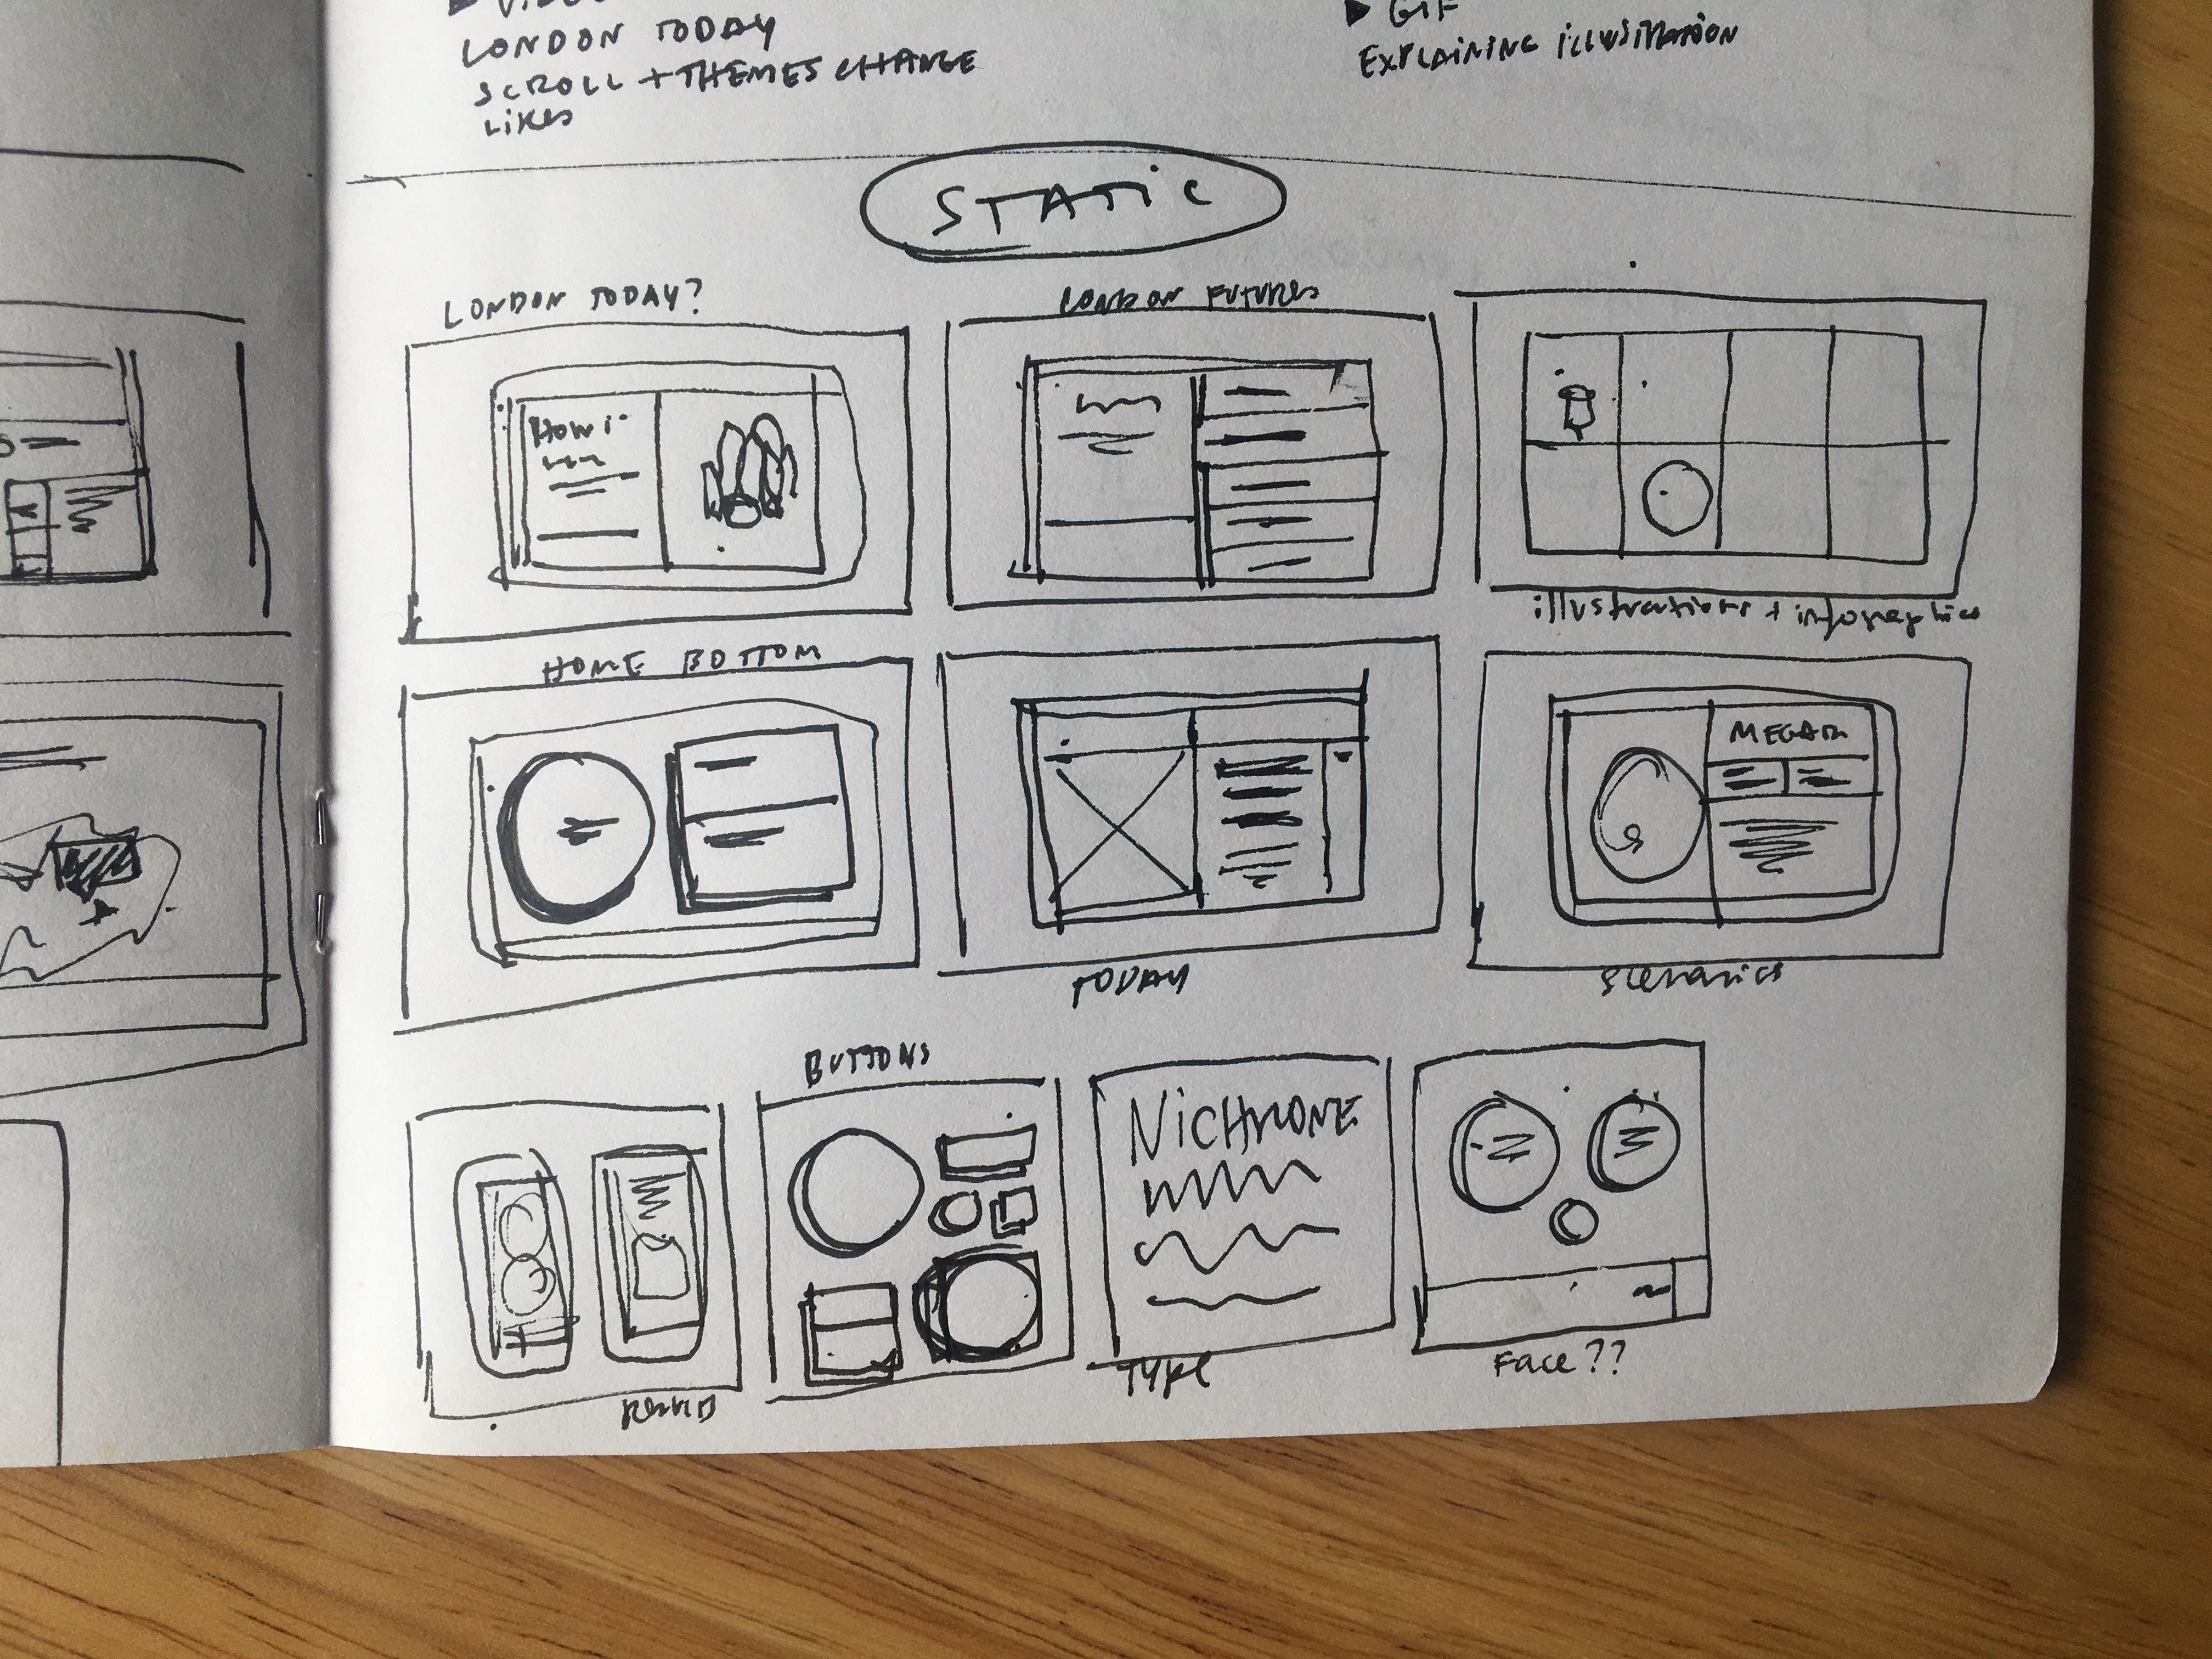 LONDON TODAY
SCROLL + THEMES CHANGE
LIKES
GIF
EXPLAINING ILLUSTRATION
STATIC
LONDON TODAY?
LONDON FUTURES
How i
illustrations + infographics
HOME BOTTOM
MEGA
TODAY
Scenarios
BUTTONS
NICHROME
TYPE
Face??